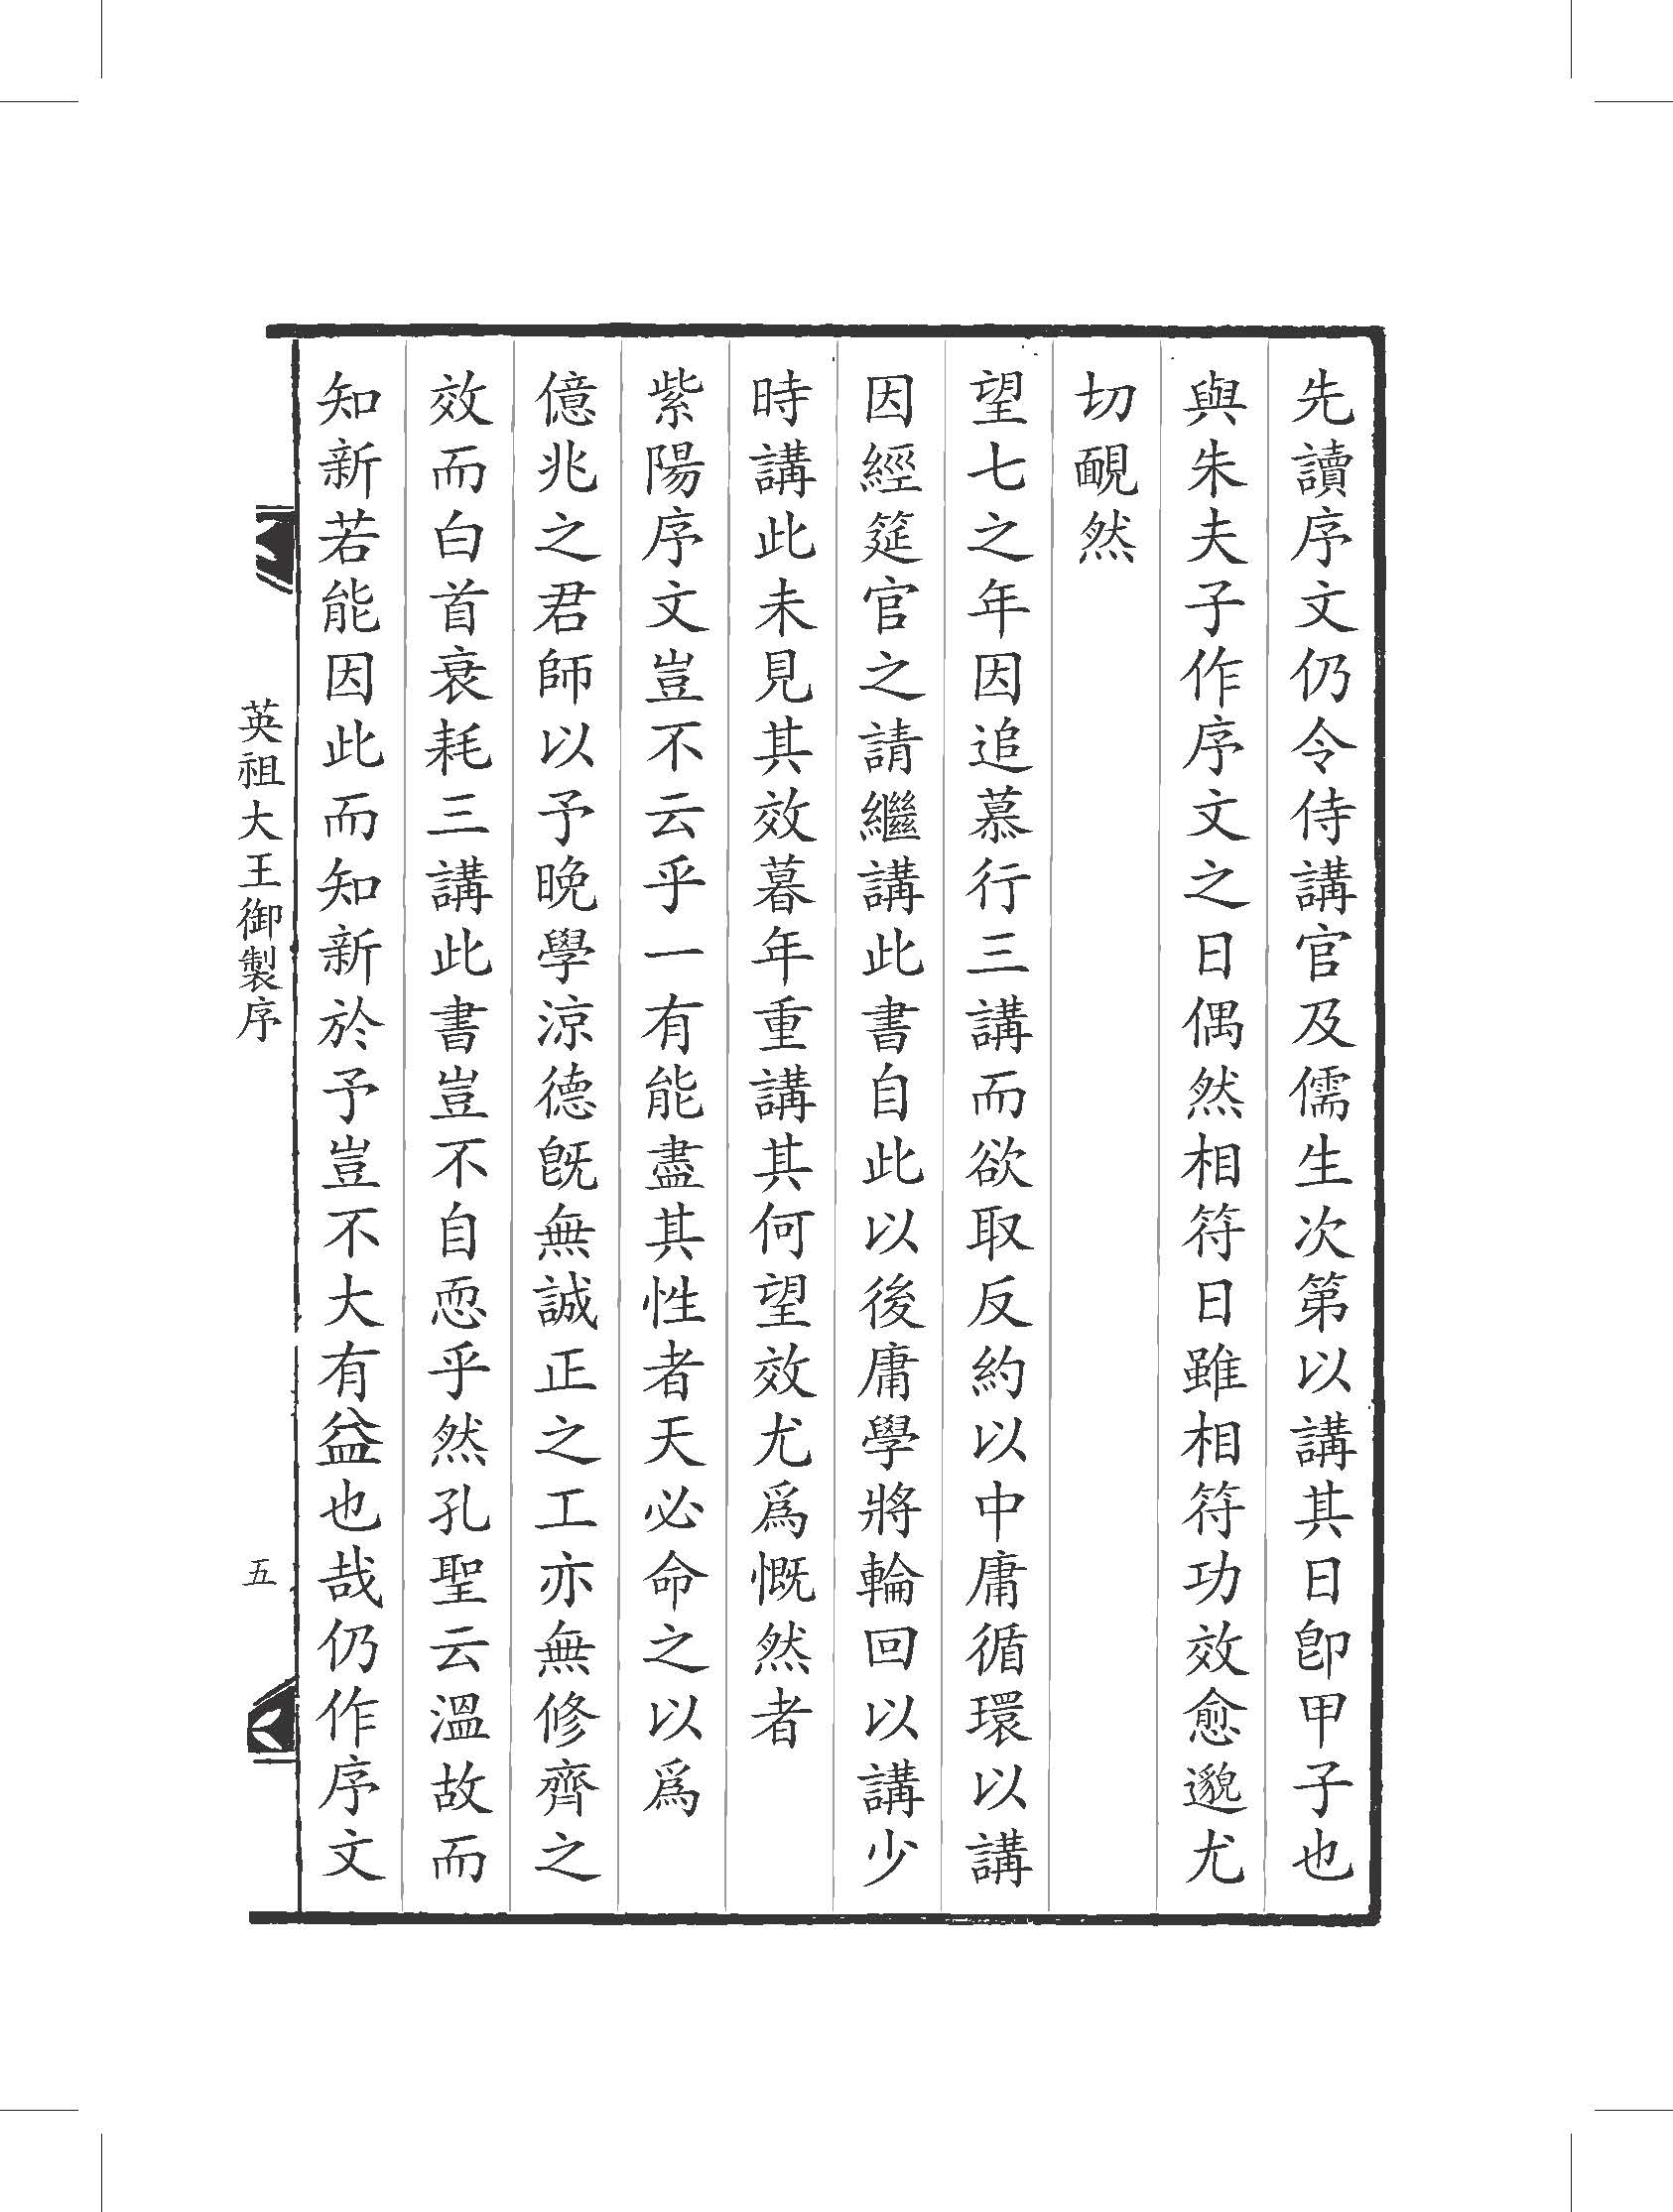 先讀序文仍令侍講官及儒生次第以講其日卽甲子也
與朱夫子作序文之日偶然相符日雖相符功效愈邈尤
切靦然
望七之年因追慕行三講而欲取反約以中庸循環以講
因經筵官之請繼講此書自此以後庸學將輪回以講少
時講此未見其效暮年重講其何望效尤爲慨然者
紫陽序文豈不云乎一有能盡其性者天必命之以爲
億兆之君師以予晚學涼德旣無誠正之工亦無修齊之
效而白首衰耗三講此書豈不自恧乎然孔聖云溫故而
知新若能因此而知新於予豈不大有益也哉仍作序文
英祖大王御製序
五